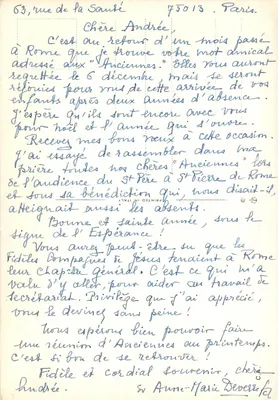 63, rue de la Santé 75013. Paris.
Chère Andrée,
C'est au retour d'un mois passé
à Rome que je trouve votre mot amical
adressé aux "Anciennes". Elles vous auront
regrettée le 6 décembre, mais se seront
réjouies pour vous de cette arrivée de vos
enfants après deux années d'absence.
J'espère qu'ils sont encore avec vous
pour Noël et l'année qui s'ouvre.
Recevez mes bons vœux à cette occasion.
J'ai essayé de rassembler dans une
prière toutes nos chères "Anciennes" lors
de l'audience du St Père à St Pierre de Rome
et sous sa bénédiction qui, nous disait-il,
atteignait aussi les absents.
Bonne et sainte année, sous le
signe de l'Espérance !
Vous avez peut-être su que les
Fidèles Compagnes de Jésus tenaient à Rome
leur Chapitre Général. C'est ce qui m'a
valu d'y aller, pour aider au travail de
Secrétariat. Privilège que j'ai apprécié,
vous le devinez sans peine !
Nous espérons bien pouvoir faire
une réunion d'Anciennes au printemps.
C'est si bon de se retrouver !
Fidèle et cordial souvenir, chère
Andrée.
Sr Anne-Marie